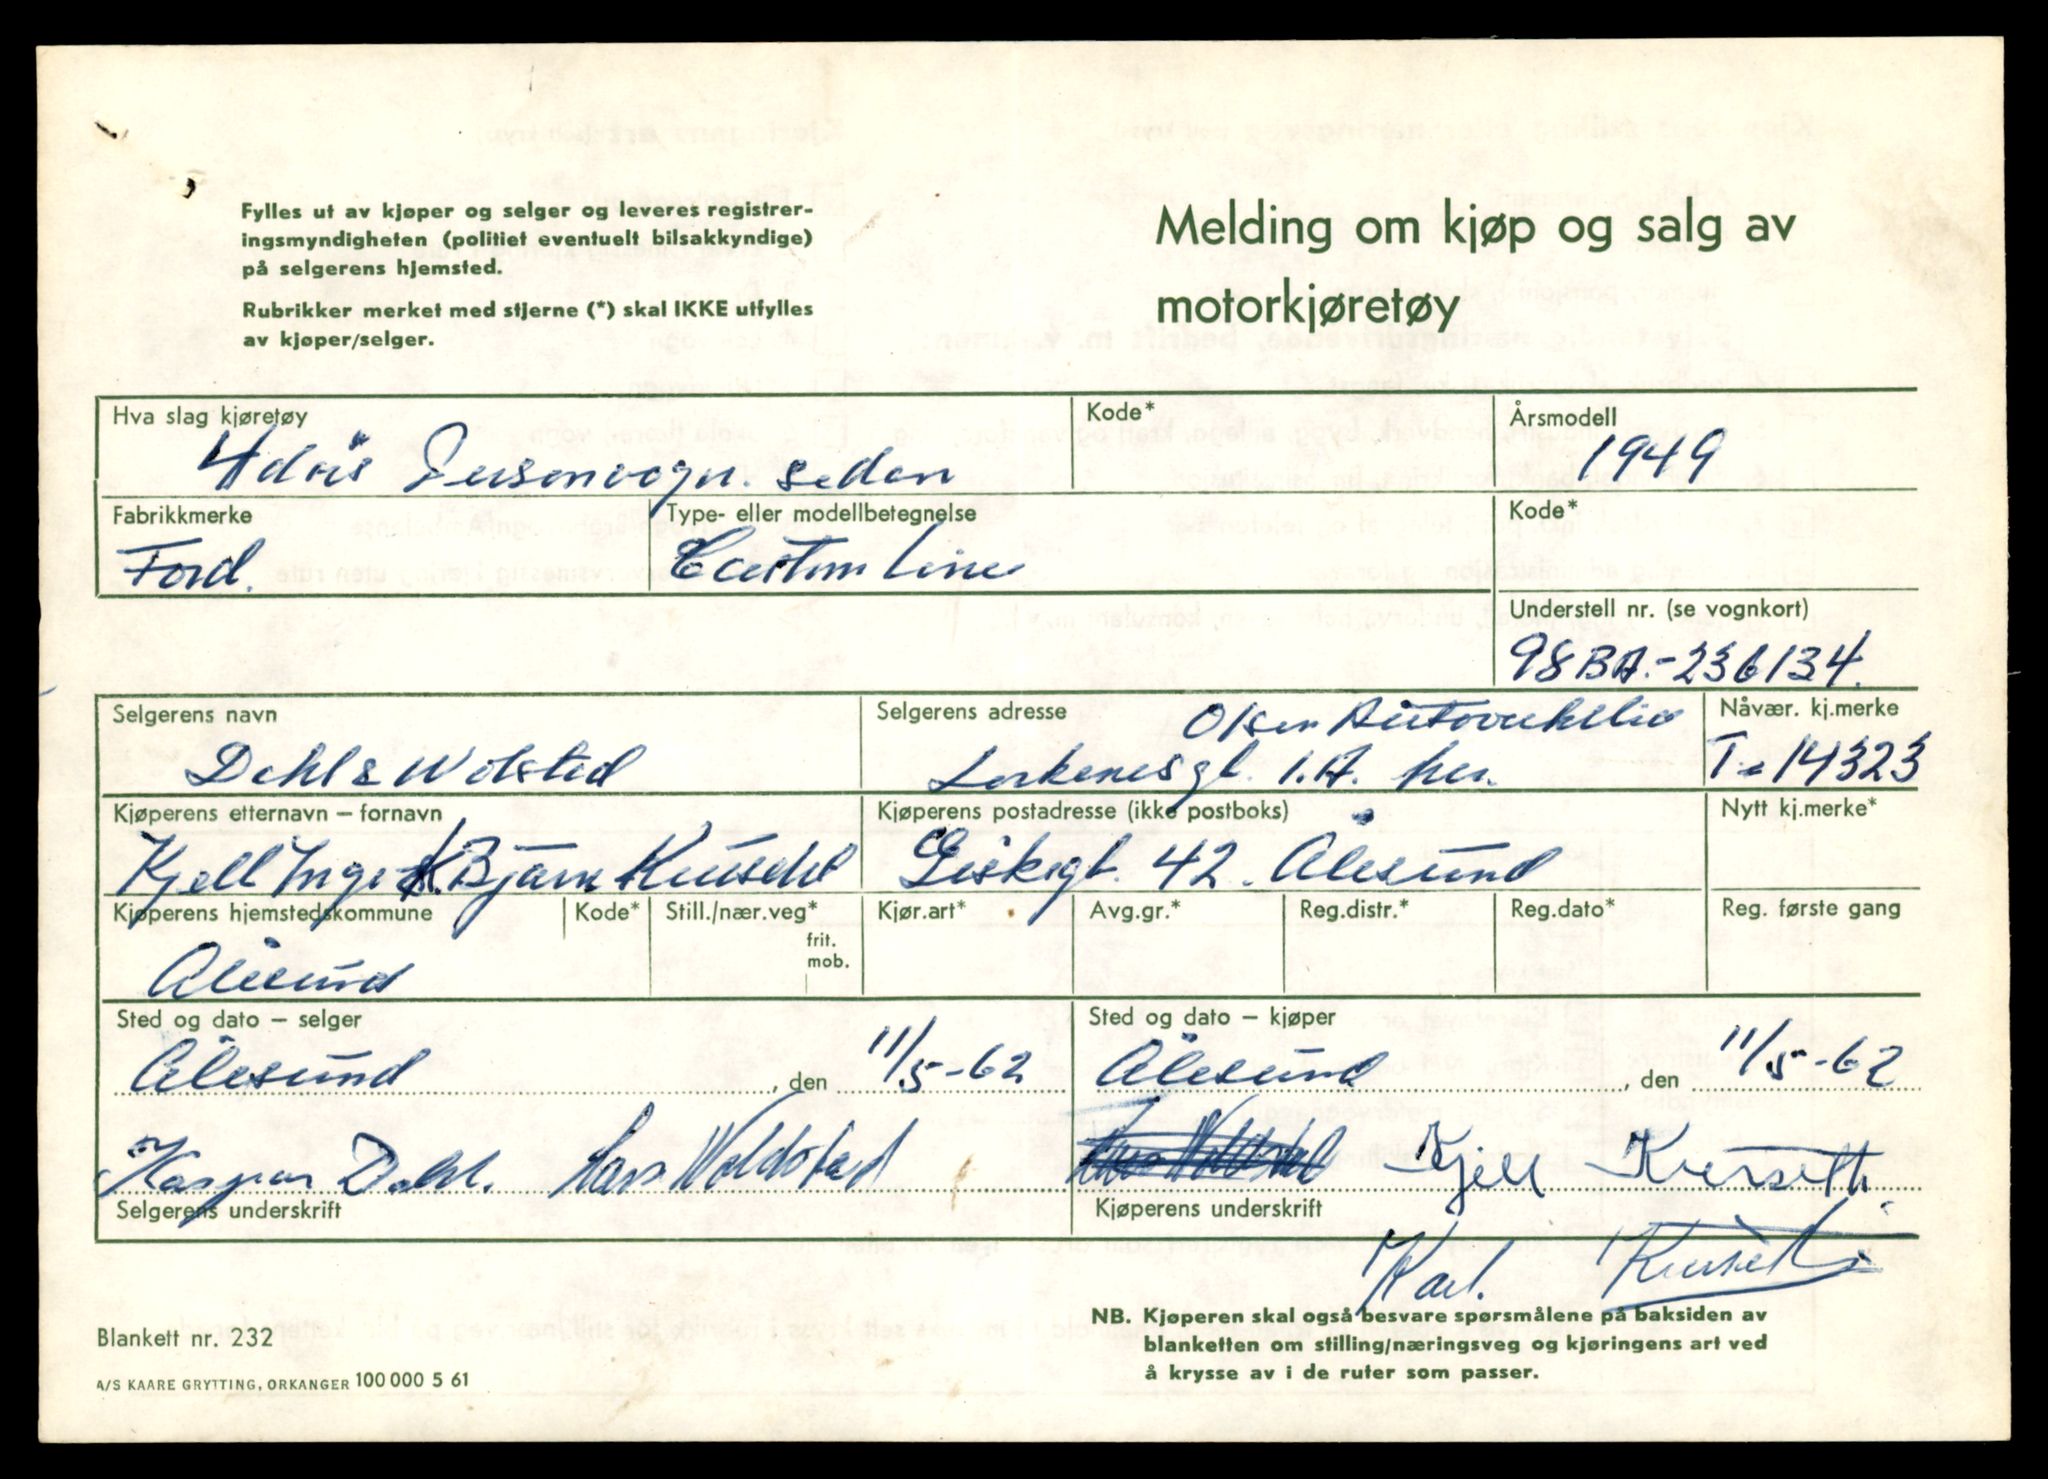 Fylles ut av kjøper og selger og leveres registrer-
ingsmyndigheten (politiet eventuelt bilsakkyndige)
på selgerens hjemsted.
Rubrikker merket med stjerne (*) skal IKKE utfylles
av kjøper/selger.
Melding om kjøp og salg av
motorkjøretøy
Hva slag kjøretøy
4dørs Personvogn. sedan
Kode*
Årsmodell
1949
Fabrikkmerke
Ford.
Type- eller modellbetegnelse
Custom Line
Kode*
Understell nr. (se vognkort)
98BA.-236134.
Selgerens navn
Dahl & Wolstad
Selgerens adresse
Olsen
gt. 1.A. her.
Nåvær. kj.merke
T. 14323
Kjøperens etternavn – fornavn
Kjell Inge Bjarne
Kjøperens postadresse (ikke postboks)
42. Ålesund
Nytt kj.merke*
Kjøperens hjemstedskommune
Ålesund
Kode*
Still./nær.veg*
frit.
mob.
Kjør.art*
Avg.gr.*
Reg.distr.*
Reg.dato*
Reg. første gang
Sted og dato – selger
Ålesund, den 11/5-62
Sted og dato – kjøper
Ålesund, den 11/5-62
Kaspar Dahl. Lars Woldstad
Kjell Kursetti
Selgerens underskrift
Kjøperens underskrift
Karl Kurseth
NB. Kjøperen skal også besvare spørsmålene på baksiden av
blanketten om stilling/næringsveg og kjøringens art ved
å krysse av i de ruter som passer.
Blankett nr. 232
A/S KAARE GRYTTING, ORKANGER 100 000 5 61